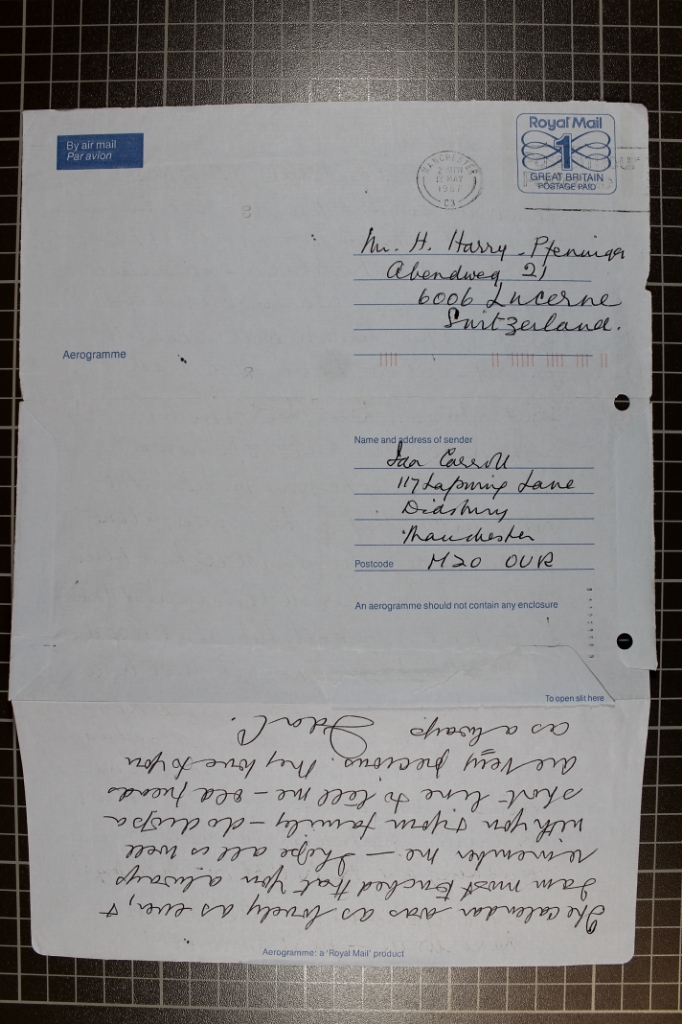 By air mail
Par avion
Royal Mail
1
GREAT BRITAIN
POSTAGE PAID
MANCHESTER
MAY
1987
Mr. H. Harry-Pfenninger
Abendweg 21
6006 Lucerne
Switzerland.
Aerogramme
Name and address of sender
Ida Carroll
117 Lapwing Lane
Didsbury
Manchester
Postcode M20 OUR
An aerogramme should not contain any enclosure
To open slit here
The calendar was as lovely as ever, &
I am most touched that you always
remember me – I hope all is well
with you & your family – do drop a
short line to tell me – old friends
are very precious. My love to you
as always. Ida C.
Aerogramme: a 'Royal Mail' product